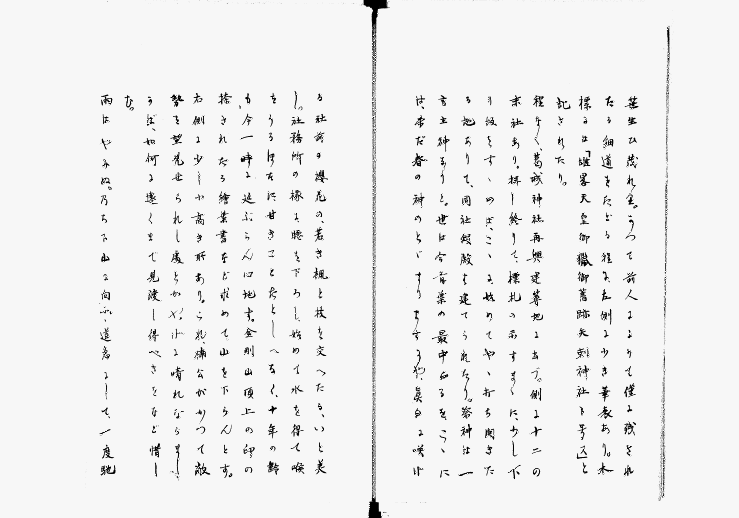 笹生ひ茂れる。かつて前人によりて僅に残され
たる細道をたどる程に、左側に少き華表あり。木
標には「雄畧天皇御獵御舊跡矢刺神社ト号ス」と
記されたり。
程なく、葛城神社再興建築地に出づ。側に十二の
末社あり。拝し終りて、標札の示すまゝに、少し下
り坂をすゝめば、こゝに始めてやゝ打ち開きた
る地ありて、同社假殿を建てられたり。祭神は一
言主神なりと。世は今首葉の最中なるを、こゝに
は、未だ春の神のとゞまりますらむや、真白に咲け
る社前の櫻花の、若き楓と枝を交へたる、いと美
し。社務所の椽に腰を下ろし、始めて水を得て喉
をうるほすに甘きことたとしへなく、十年の齢
も今一時に延ぶらん心地す。金剛山頂上の印の
捺されたる繪葉書など求めて、山を下らんとす。
右側に少し小高き所あり。これ、楠公がかつて敵
勢を望見せられし處とか。天に晴れならましか
うば、如何に遠くまで見渡し得べきをなど惜し
む。
雨はやみぬ。乃ち下山に向ふ。道急にして、一度馳